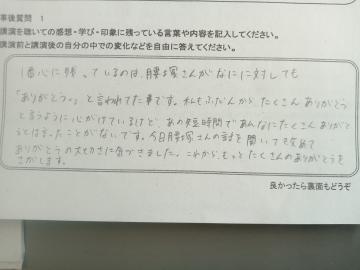 事後質問 1
講演を聴いての感想・学び・印象に残っている言葉や内容を記入してください。
講演前と講演後の自分の中での変化などを自由に答えてください。
1番心に残っているのは、腰塚さんがなにに対しても
「ありがとう。」と言われてた事です。私もふだんから、たくさんありがとう
と言うように心がけているけど、あの短時間であんなにたくさんありがとう
とは言ったことがないです。今日腰塚さんの話を聞いて改めて
ありがとうの大切さに気づきました。これから、もっとたくさんのありがとうを
さがします。
良かったら裏面もどうぞ